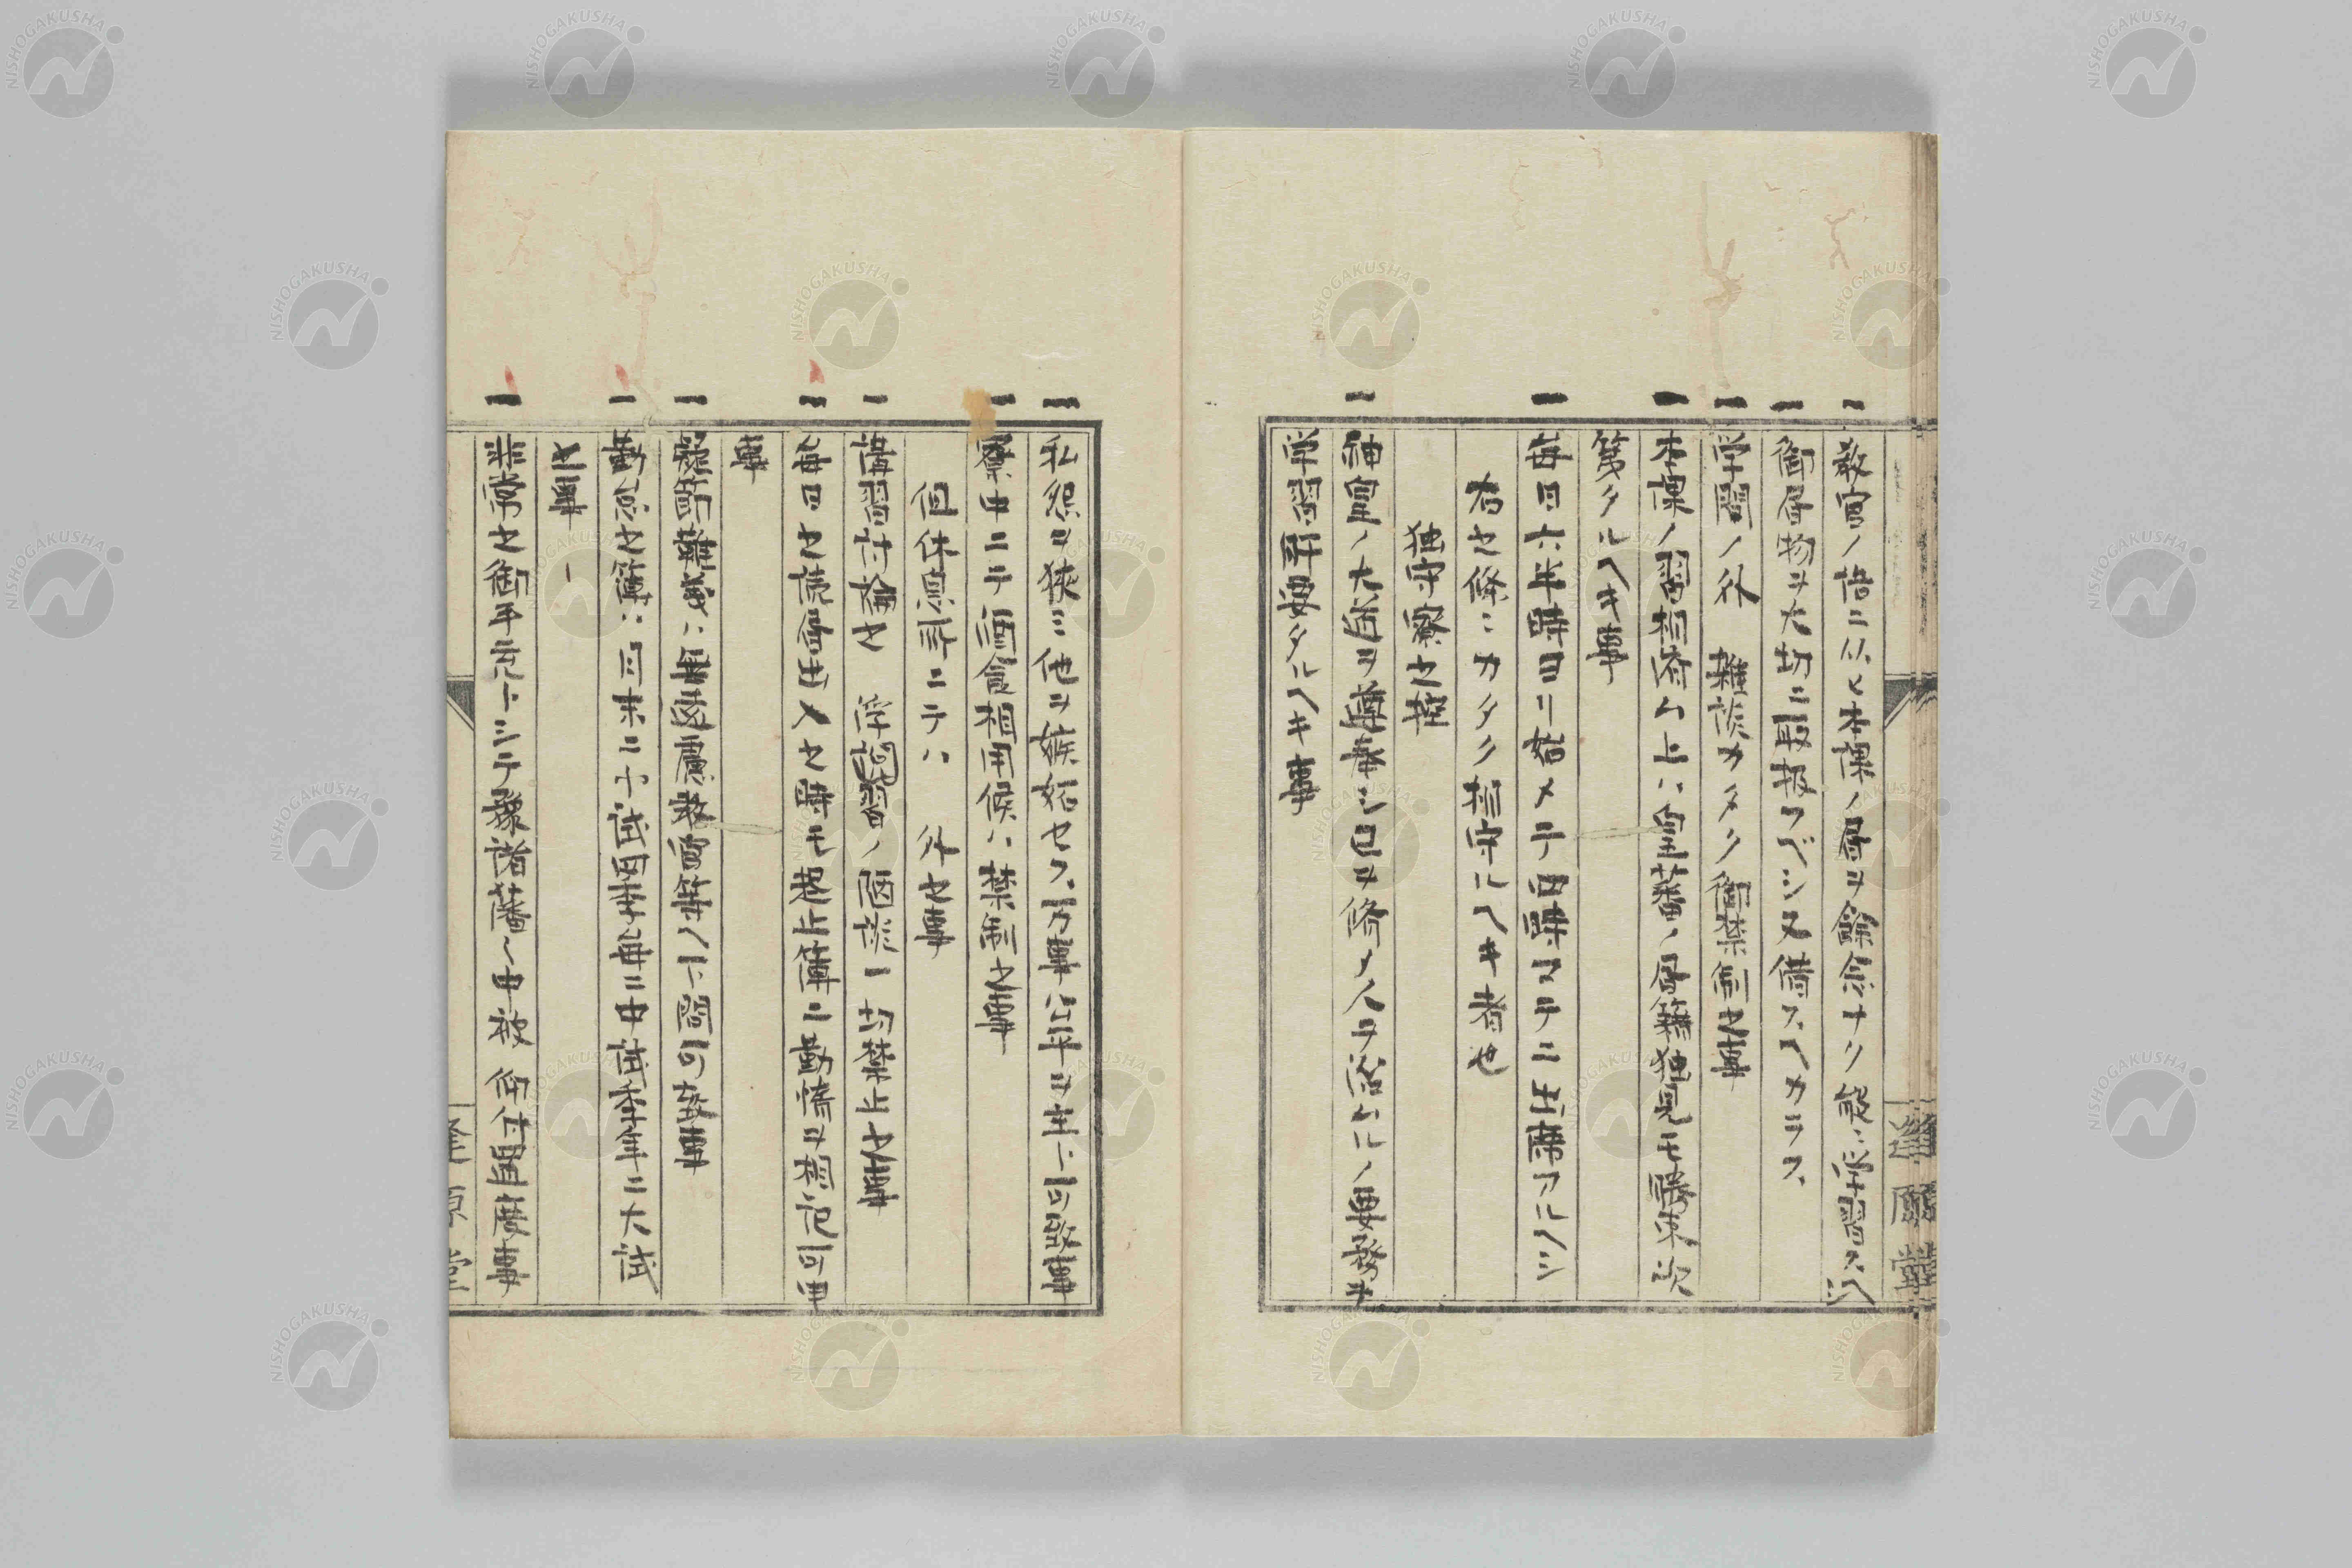 一 教官ノ指ニ从ヒ本課ノ書ヲ餘念ナク能ク学習スヘシ
一 御書物ヲ大切ニ取扱フベシ又借スヘカラス
一 学問ノ外 雑談カタク御禁制之事
一 本課ノ習相済ム上ハ皇蕃ノ書籍独見モ勝手次
第タルヘキ事
一 毎日六半時ヨリ始メテ四時マテニ出席アルヘシ
右之條々カタク相守ルヘキ者也
独守寮之掟
一 神皇ノ大道ヲ尊奉シ己ヲ脩メ人ヲ治ムルノ要務ヲ
学習肝要タルヘキ事
一 私怨ヲ狹ミ他ヲ嫉妬セス万事公平ヲ主ト可致事
一 寮中ニテ酒食相用候ハ禁制之事
但休息所ニテハ 外之事
一 講習討論之 淫習ノ陋談一切禁止之事
一 毎日之読僃出メ之時モ起止簿ニ勤惰ヲ相記可申
事
一 疑節難義ハ無遠慮教官等ヘ下問可致事
一 勤怠之簿ハ月末ニ小試四季毎ニ中試季年ニ大試
之事
一 非常之御手充トシテ豫諸藩ヘ申被 仰付置度事
進原堂